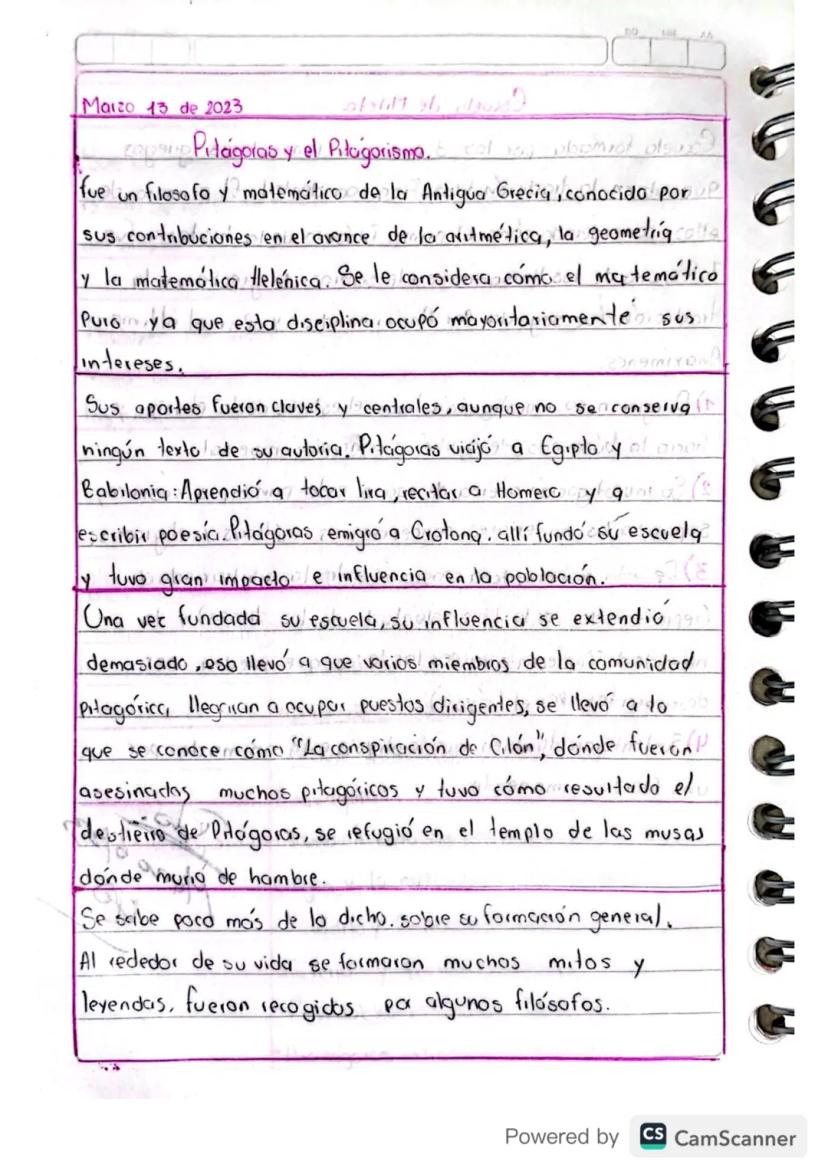 Marzo 13 de 2023
Pitágoras y el Pitagorismo.
fue un filosofo y matemático de la Antigua Grecia, conocido por
sus contribuciones en el avance de la aritmética, la geometría
y la matemática Helénica. Se le considera cómo el matemático
Puro ya que esta disciplina ocupó mayoritariamente sus
intereses.
Sus aportes fueron claves y centrales, aunque no se conserva
ningún texto de su autoria. Pitágoras viajó a Egipto y
Babilonia: Aprendió a tocar lira, recitar a Homero y a
escribir poesía. Pitágoras emigró a Crotona. allí fundó su escuela
y tuvo gran impacto e influencia en la población.
Una vez fundada su escuela, su influencia se extendió
demasiado, eso llevó a que varios miembros de la comunidad
pitagórica llegaran a ocupar puestos dirigentes, se llevó a lo
que se conoce cómo "La conspiración de Cilón", dónde fuerón
asesinados muchos pitagóricos y tuvo cómo resultado el
destierro de Pitágoras, se refugió en el templo de las musas
dónde murió de hambre.
Se sabe poco más de lo dicho. sobre su formación general.
Al rededor de su vida se formaron muchos mitos y
leyendas, fueron recogidos por algunos filósofos.
Powered by CS CamScanner